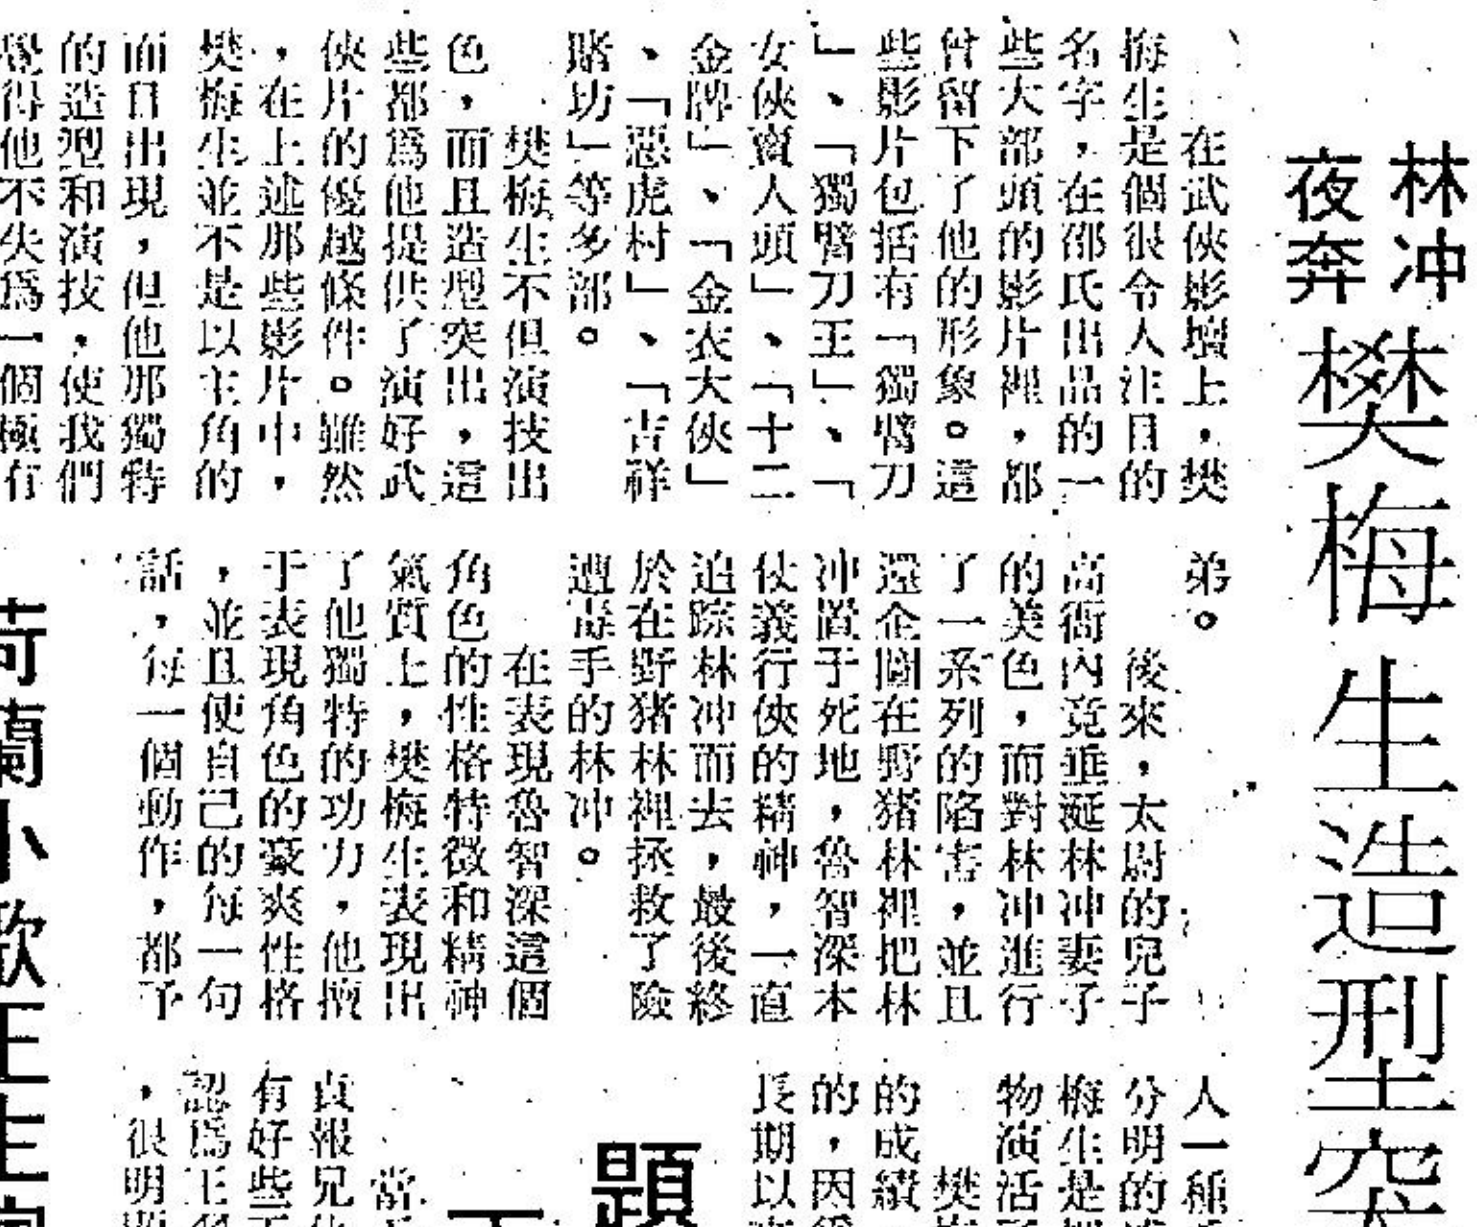 林冲
夜奔
樊梅生造型突
在武俠影壇上，樊
梅生是個很令人注目的
名字，在邵氏出品的一
些大部頭的影片裡，都
曾留下了他的形象。這
些影片包括有「獨臂刀
」、「獨臂刀王」、「
女俠賣人頭」、「十二
金牌」、「金衣大俠」
、「惡虎村」、「吉祥
賭坊」等多部。
樊梅生不但演技出
色，而且造型突出，這
些都爲他提供了演好武
俠片的優越條件。雖然
，在上述那些影片中，
樊梅生並不是以主角的
面目出現，但他那獨特
的造型和演技，使我們
覺得他不失爲一個極有
弟。
後來，太尉的兒子
高衙內竟垂涎林冲妻子
的美色，而對林冲進行
了一系列的陷害，並且
還企圖在野猪林裡把林
冲置于死地，魯智深本
仗義行俠的精神，一直
追踪林冲而去，最後終
於在野猪林裡拯救了險
遭毒手的林冲。
在表現魯智深這個
角色的性格特徵和精神
氣質上，樊梅生表現出
了他獨特的功力，他擅
于表現角色的豪爽性格
，並且使自己的每一句
話，每一個動作，都予
人一種
分明的
梅生是
物演活
樊
的成績
的，因
長期以
題
當
貞報兄
有好些
認爲王
，很明
荷蘭小歌王生